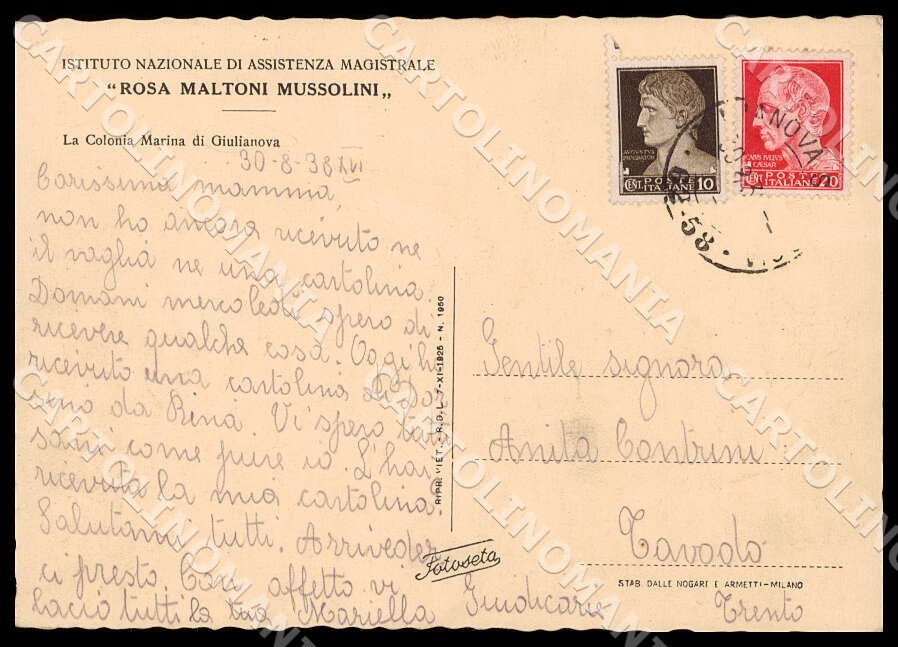 ISTITUTO NAZIONALE DI ASSISTENZA MAGISTRALE
"ROSA MALTONI MUSSOLINI„
La Colonia Marina di Giulianova
30-8-38 XVI
Carissima mamma,
non ho ancora ricevuto ne
il vaglia ne una cartolina.
Domani mercoledì spero di
ricevere qualche cosa. Oggi ho
ricevuto una cartolina da
da Rina. Vi spero tutti
sani come pure io. L'hai
ricevuta la mia cartolina?
Salutami tutti. Arriveder
ci presto. Con affetto vi
bacio tutti la tua Mariella
AUGUSTUS
IMPERATOR
POSTE
CENT. ITALIANE 10
CAIUS IULIUS
CAESAR
POSTE
CENT. ITALIANE 20
NOVA
58
RIPR. VIET. - R.D.L. 7-XI-1925 - N. 1950
Gentile signora
Anita Contrini
Tavodo
Giudicarie Trento
Fotoseta
STAB. DALLE NOGARE E ARMETTI - MILANO
CARTOLINOMANIA